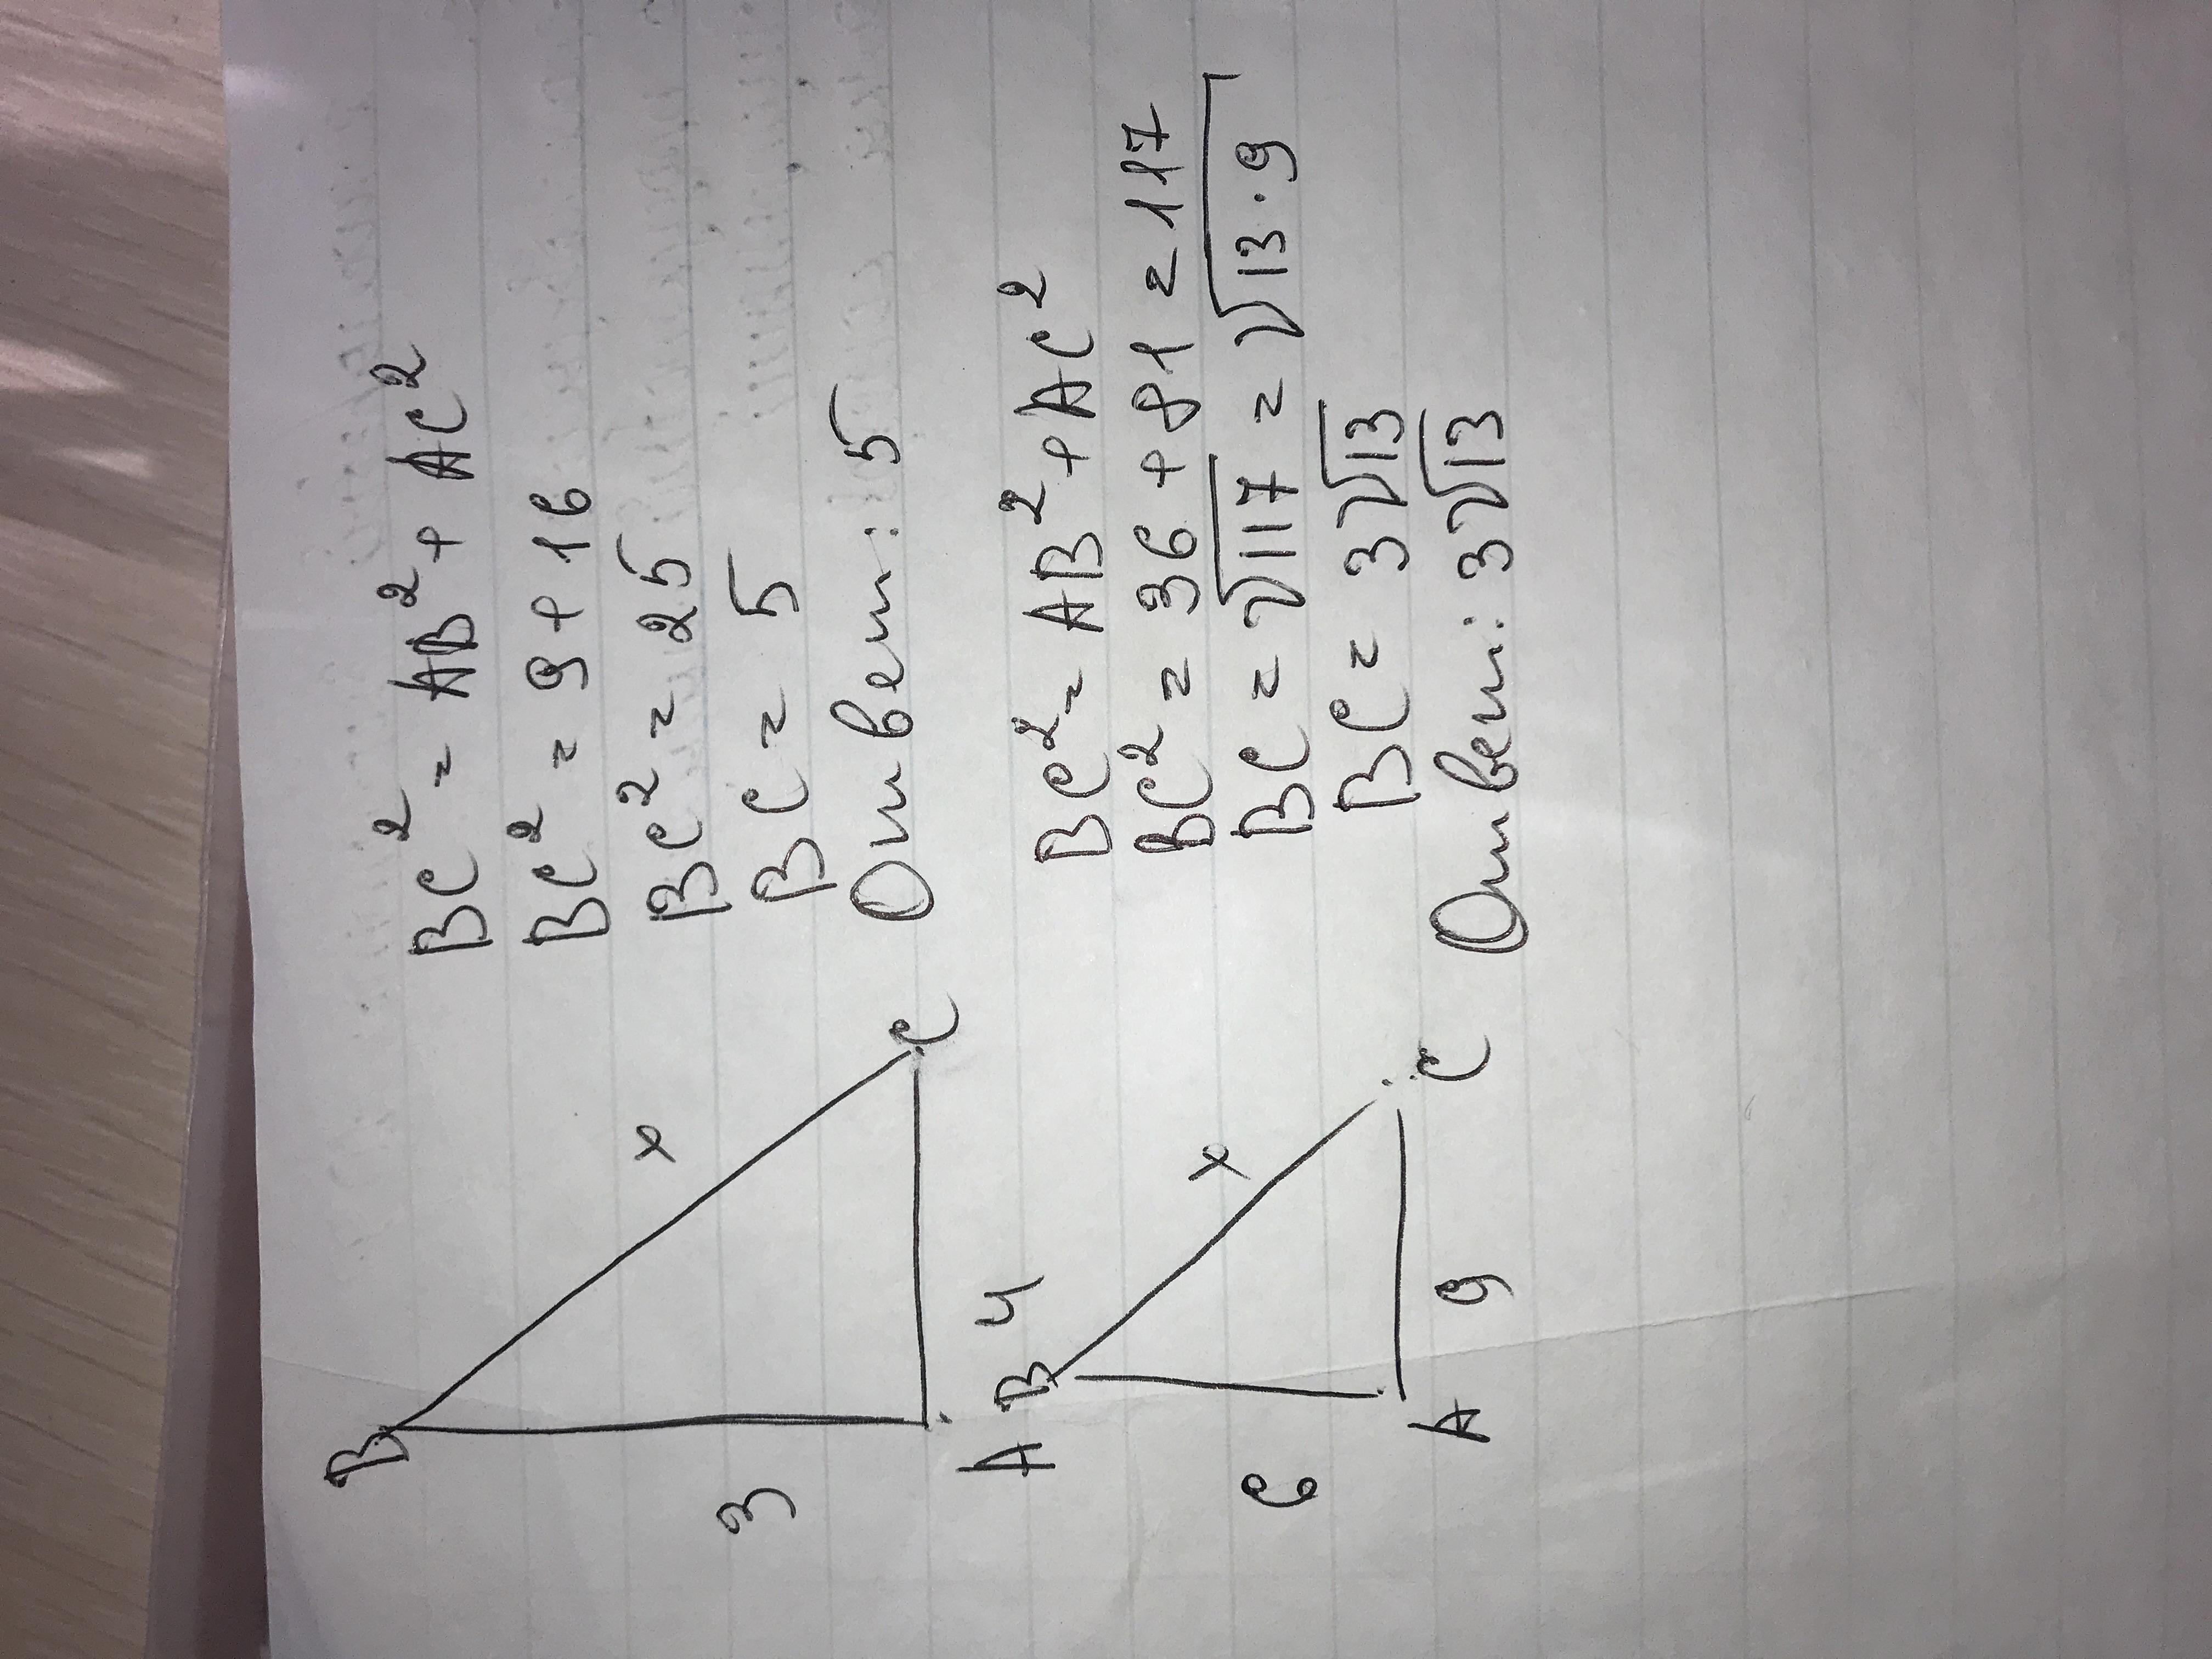 B
x
3
A
4
C
BC² = AB² + AC²
BC² = 9 + 16
BC² = 25
BC = 5
Ответ: 5
B
x
6
A
9
C
BC² = AB² + AC²
BC² = 36 + 81 = 117
BC = √117 = √13·9
BC = 3√13
Ответ: 3√13